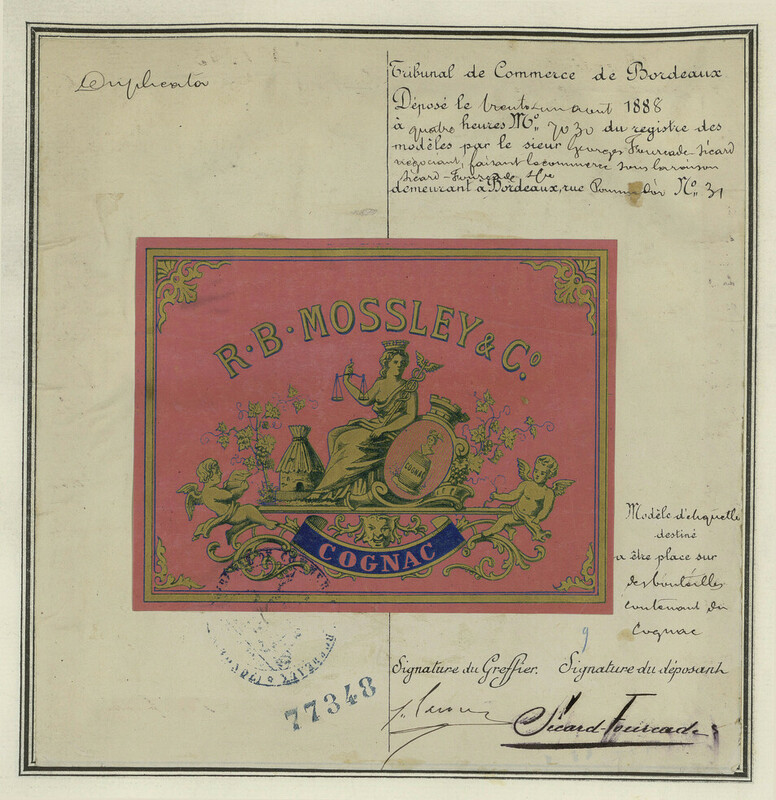 Duplicata
Tribunal de Commerce de Bordeaux
Déposé le trente un août 1888
à quatre heures No. 7030 du registre des
modèles par le sieur Georges Fourcade-Sicard
négociant, faisant le commerce sous la raison
Sicard-Fourcade & Cie
demeurant à Bordeaux, rue No. 31
R·B·MOSSLEY & Co.
COGNAC
COGNAC
Modèle d'étiquette
destiné
a être place sur
des bouteilles
contenant du
Cognac
9
Signature du Greffier. Signature du déposant
Sicard-Fourcade
77348